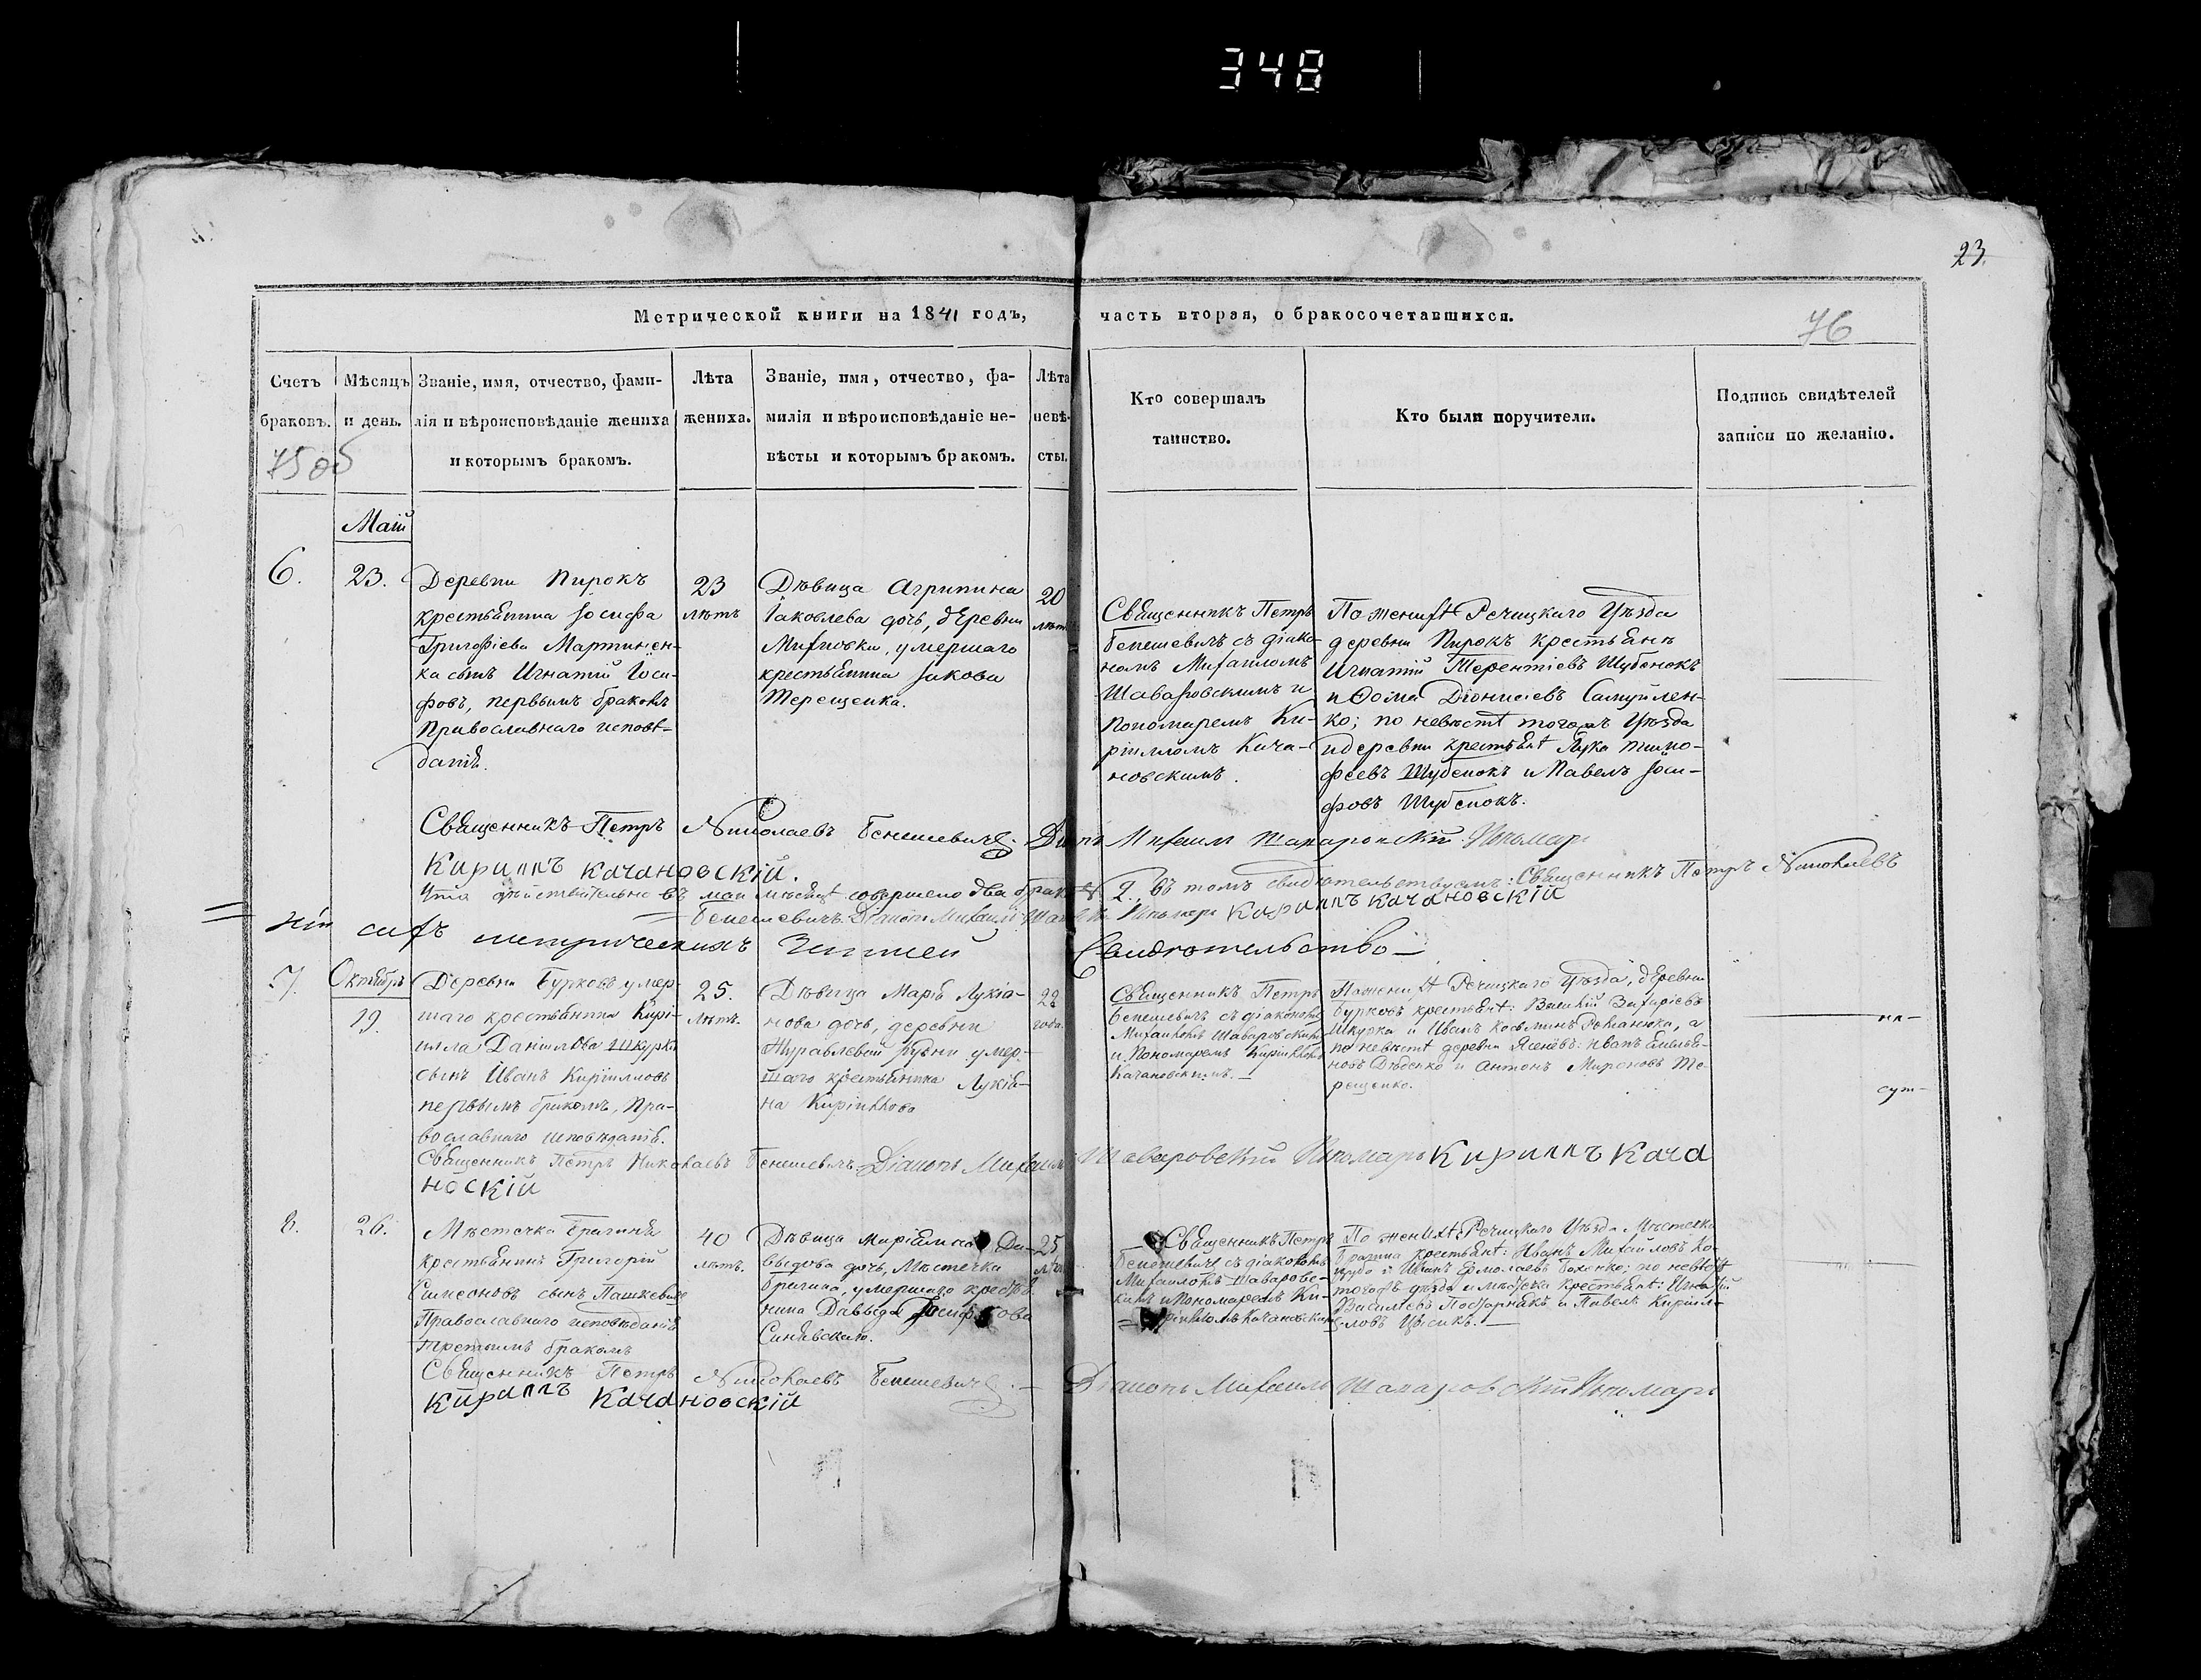 348
23.
Метрической книги на 1841 годъ, часть вторая, о бракосочетавшихся.
76
Счетъ браковъ.
75 об
Мѣсяцъ и день.
Званіе, имя, отчество, фами-
лія и вѣроисповѣданіе жениха
и которымъ бракомъ.
Лѣта
жениха.
Званіе, имя, отчество, фа-
милія и вѣроисповѣданіе не-
вѣсты и которымъ бракомъ.
Лѣта
невѣ-
сты.
Кто совершалъ
таинство.
Кто были поручители.
Подпись свидѣтелей
записи по желанію.
Маій
6.
23.
Деревни Пирокъ
крестьянина Іосифа
Григоріева Мартинен-
ка сынъ Игнатій Іоси-
фовъ, первымъ бракомъ
Православнаго исповѣ-
данія.
23
лѣтъ
Дѣвица Агрипина
Іаковлева дочь, деревни
умершаго
крестьянина Іакова
Терещенка.
20
лѣтъ
Священникъ Петръ
Бенешевичъ съ діако-
номъ Михаиломъ
Шаваровскимъ и
Пономаремъ Ки-
рилломъ Кача-
новскимъ.
По женихѣ Речицкаго Уѣзда
деревни Пирокъ крестьяне
Игнатій Терентіевъ Шубенокъ
и Фома Діонисіевъ Самуйлен-
ко; по невѣстѣ тогожъ Уѣзда
и деревни крестьяне Лука Тимо-
феевъ Шубенокъ и Павелъ Іоси-
фовъ Шубенокъ.
Священникъ Петръ Николаевъ Бенешевичъ. Діаконъ Михаилъ Шаваровскій Пономарь
Кириллъ Качановскій.
Что дѣйствительно въ маи мѣсяцѣ совершено два брака 2. въ томъ свидѣтельствуемъ: Священникъ Петръ Николаевъ
Бенешевичъ. Діаконъ Михаилъ Пономарь Кариллъ Качановскій
сихъ метрическихъ Свидѣтельство
7.
Октябрь
19.
Деревни Бурковъ умер-
шаго крестьянина Кири-
лла Данилова Шкурки
сынъ Иванъ Кирилловъ
первымъ бракомъ, Пра-
вославнаго исповѣданія.
25.
лѣтъ.
Дѣвица Марія Лукіа-
нова дочь, деревни
умер-
шаго крестьянина Лукія-
на Кириллова
22
года.
Священникъ Петръ
Бенешевичъ съ діакономъ
Михаиломъ Шаваровскимъ
и Пономаремъ Кирилломъ
Качановскимъ.
По женихѣ Речицкаго Уѣзда, деревни
Бурковъ крестьяне: Василій Захаріевъ
Шкурка и Иванъ Романюка, а
по невѣстѣ деревни Ясеновъ: Иванъ Емелья-
новъ Дѣденко и Антонъ Мироновъ Те-
рещенко.
не-
сут-
Священникъ Петръ Николаевъ Бенешевичъ. Діаконъ Михаилъ Шаваровскій Пономарь Кириллъ Кача
носкій
8.
26.
Мѣстечка Брагиня
крестьянинъ Григорій
Симеоновъ сынъ Пашкевичъ
Православнаго исповѣданія
Третьимъ бракомъ
40
лѣтъ.
Дѣвица Да-
выдова дочь, Мѣстечка
Брагина, умершаго крестья-
нина Давыда
Синявскаго.
25
Священникъ Петръ
Бенешевичъ съ діакономъ
Михаиломъ Шаваровс-
кимъ и Пономаремъ Ки-
рилломъ Качановскимъ
По женихѣ: Речицкаго Уѣзда Мѣстечка
Брагина крестьяне: Иванъ Михайловъ
и Иванъ Ермолаевъ по невѣстѣ
тогожъ уѣзда и мѣстечка крестьяне: Игнатій
Васильевъ и Павелъ Кирил-
ловъ
Священникъ Петръ Николаевъ Бенешевичъ. Діаконъ Михаилъ Шаваровскій Пономарь
Кириллъ Качановскій